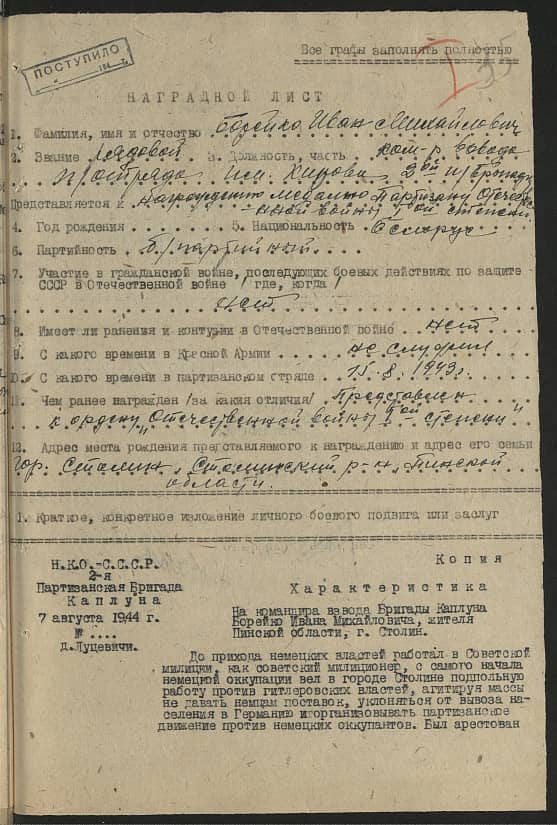 Все графы заполнять полностью
35
ПОСТУПИЛО
НАГРАДНОЙ ЛИСТ
1. Фамилия, имя и отчество Борейко Иван Михайлович
2. Звание рядовой 3. Должность, часть ком-р взвода
п/отряда им. Кирова 2ой п/бригады
Представляется к награждению медалью Партизану Отечес-
нной войны Iой степени
4. Год рождения . . . . . 5. Национальность Беларус
6. Партийность б/партийный
7. Участие в гражданской войне, последующих боевых действиях по защите
СССР в Отечественной войне /где, когда/
нет
8. Имеет ли ранения и контузии в Отечественной войне нет
9. С какого времени в Красной Армии не служил
10. С какого времени в партизанском отряде 15.8.1943г.
11. Чем ранее награжден /за какия отличия/ Представлен
к ордену „Отечественной войны ой степени"
12. Адрес места рождения преставляемого к награждению и адрес его семьи
гор. Столин, Столинский р-н, Пинской
области.
1. Краткое, конкретное изложение личного боевого подвига или заслуг
Копия
Н.К.О.-С.С.С.Р.
2-я
Партизанская Бригада
Каплуна
7 августа 1944 г.
№ ....
Д.Луцевичи.
Характеристика
На командира взвода Бригады Каплуна
Борейко Ивана Михайловича, жителя
Пинской области, г. Столин.
До прихода немецких властей работал в Советской
милиции, как советский милиционер, с самого начала
немецкой оккупации вел в городе Столине подпольную
работу против гитлеровских властей, агитируя массы
не давать немцам поставок, уклоняться от вывоза на-
селения в Германию иорганизовывать партизанское
движение против немецких оккупантов. Был арестован